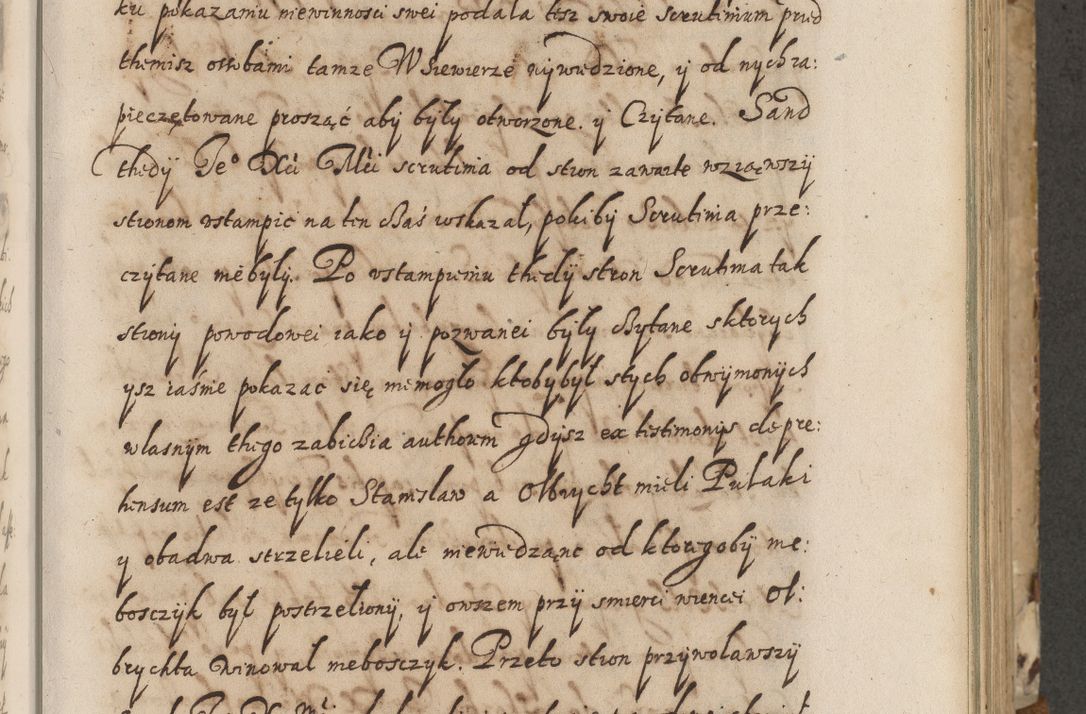 ku pokazaniu niewinnosci swei podała tesz swoie Scrutinium przed
themisz osobami tamze W Siewierze wywiedzione, y od nych za:
pieczętowane prosząc aby były otworzone. y Czytane. Sand
thedy Je° Xći Mći scrutinia od stron zawarte wziąwszy
stronom ustampic na ten Czas wskazał, pokiby Scrutinia prze:
czytane niebyly. Po ustampieniu thedy stron Scrutinia tak
strony powodowei iako y pozwanei były Czytane sktorych
ysz iaśnie pokazać się niemogło ktobybył stych obwymonych
własnym thego zabicia authorem gdysz ex testimonijs depre:
hensum est ze tylko Stanisław a Olbrycht mieli Pułaki
y obadwa strzelieli, ale niewiedząnc od ktoregoby nie:
bosczyk był postrzeliony, y owszem przy smierci wiencei Ol:
brychta winował niebosczyk. Przeto stron przywoławszy